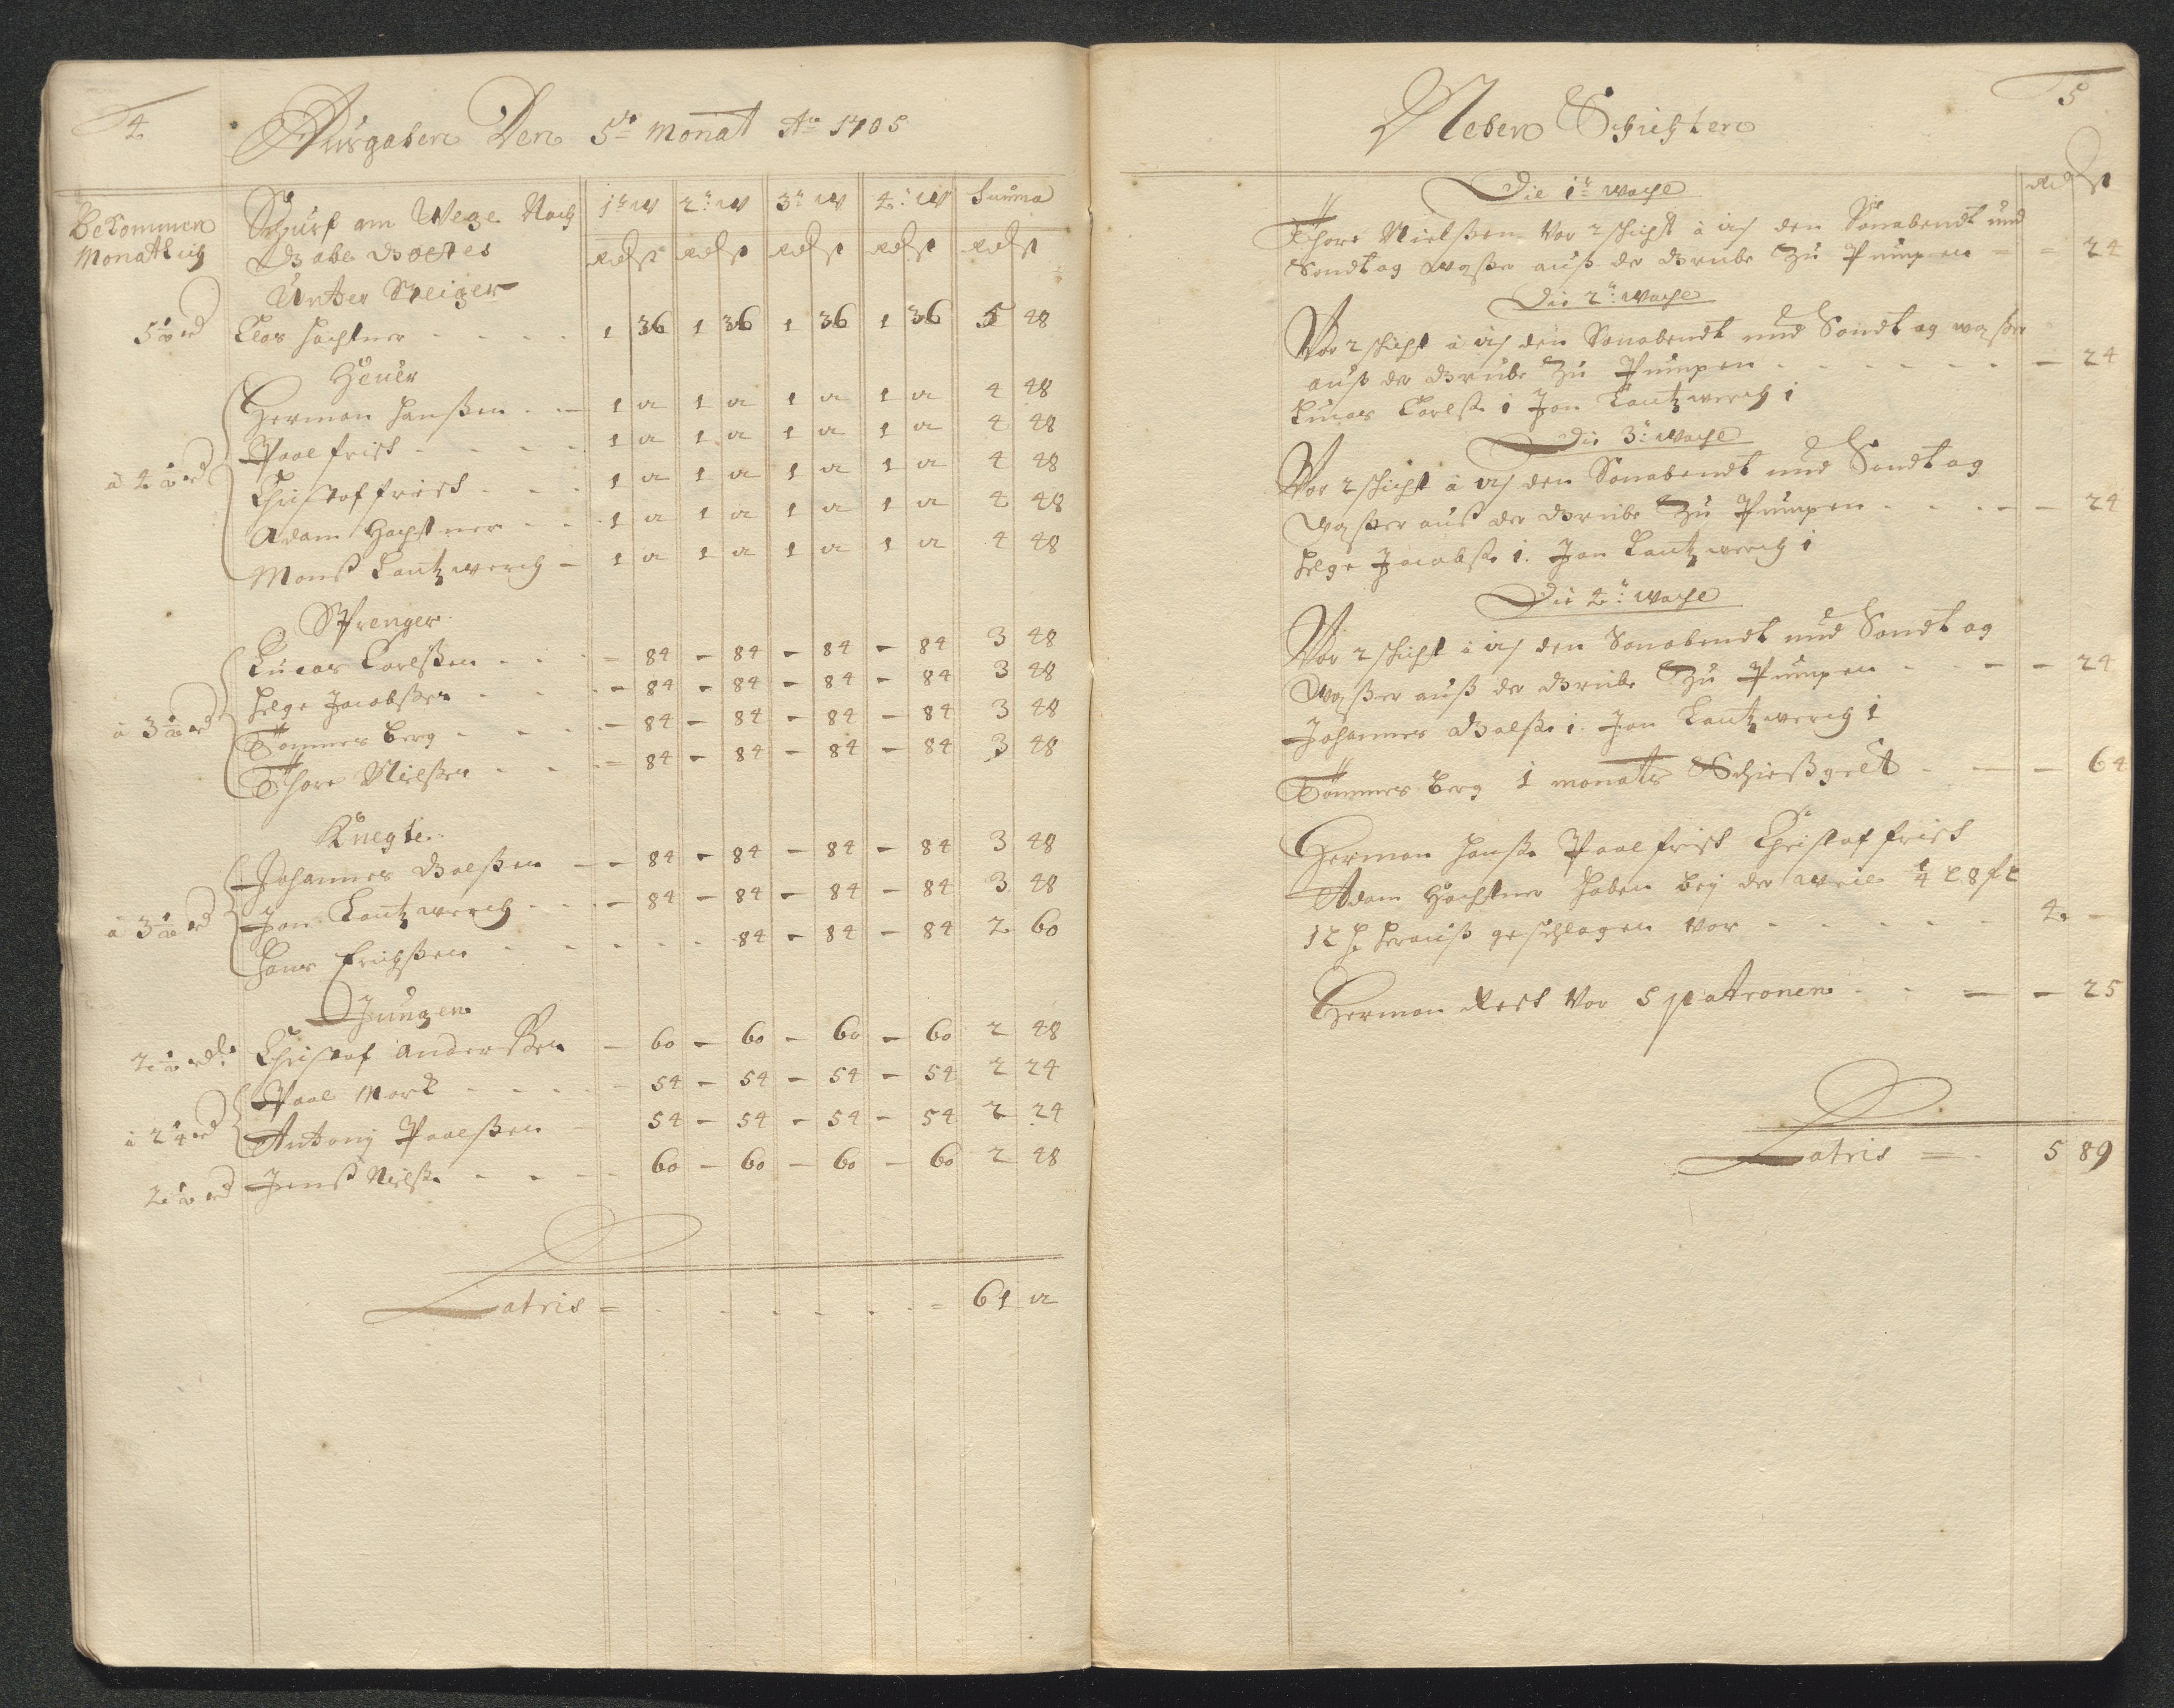 4
Ausgaben Den 5te Monat Ao 1705
Bekommen
Monatlich
Schurf am Wege Nach
Gabe Gottes
1te W 2te W 3te W 4te W Summa
Rd ß Rd ß Rd ß Rd ß Rd ß
Unter Steiger
5½ rd Clas Hechtner - - - - 1 36 1 36 1 36 1 36 5 48
Heuer
Herman Hanßen - - 1 12 1 12 1 12 1 12 4 48
Paal frick - - - - 1 12 1 12 1 12 1 12 4 48
à 4½ rd Christof frick - - - 1 12 1 12 1 12 1 12 4 48
Adam Hechtner - - 1 12 1 12 1 12 1 12 4 48
Monß Lautzwerch - 1 12 1 12 1 12 1 12 4 48
Sprenger
Lucas Carlßen - - - 84 - 84 - 84 - 84 3 48
Helge Jacobßen - - - 84 - 84 - 84 - 84 3 48
à 3½ rd Tommes Berg - - - 84 - 84 - 84 - 84 3 48
Thore Nielßen - - - 84 - 84 - 84 - 84 3 48
Knegte
Johannes Balßen - - 84 - 84 - 84 - 84 3 48
à 3½ rd Jon Lautzwerch - - - 84 - 84 - 84 - 84 3 48
Hans Erichßen - - - - - 84 - 84 - 84 2 60
Jungen
2½ rdl Christof Anderßen - 60 - 60 - 60 - 60 2 48
Paal Mork - - - - 54 - 54 - 54 - 54 2 24
à 2¼ rd Antony Paalßen - 54 - 54 - 54 - 54 2 24
2½ rd Jenß Nielß. - - - 60 - 60 - 60 - 60 2 48
Latris = - - - - - - = 61 12
5
Neben Schichten
Rd ß
Die 1te Woche
Thore Nielßen Vor 2 schicht à 12 ß den Sonabendt und
Sondtag waßer auß der Grube Zu Pumpen - - 24
Die 2te Woche
Vor 2 schicht à 12 ß den Sonabendt und Sondtag waßer
auß der Grube Zu Pumpen - - - - - - 24
Lucas Carlß. 1 Jon Lautzwerch 1
Die 3te Woche
Vor 2 schicht à 12 ß den Sonabendt und Sondtag
Waßer auß der Grube Zu Pumpen - - - - - 24
Helge Jacobß. 1. Jon Lautzwerch 1
Die 4te Woche
Vor 2 schicht à 12 ß den Sonabendt und Sondtag
Waßer auß der Grube Zu Pumpen - - - - 24
Johannes Balß. 1. Jon Lautzwerch 1
Tommes Berg 1 monats Schießgelt - - - 64
Herman Hanß. Paal frick Christof frick
Adam Hechtner haben bey der
12 herauß geschlagen vor - - - - - 4 -
Herman Reck Vor 5 patronen - - - - 25
Latris = - 5 89